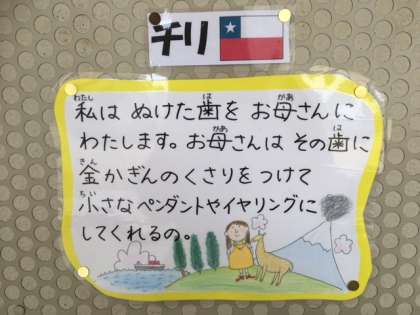 チリ
私は ぬけた歯を お母さんに
わたします。お母さんは その歯に
金かぎんのくさりをつけて
小さなペンダントやイヤリングに
してくれるの。